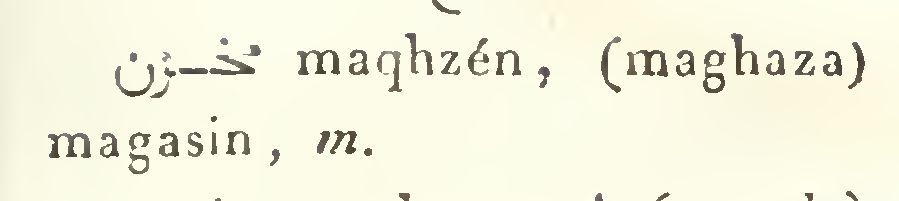 مخـزن maqhzén, (maghaza)
magasin, m.